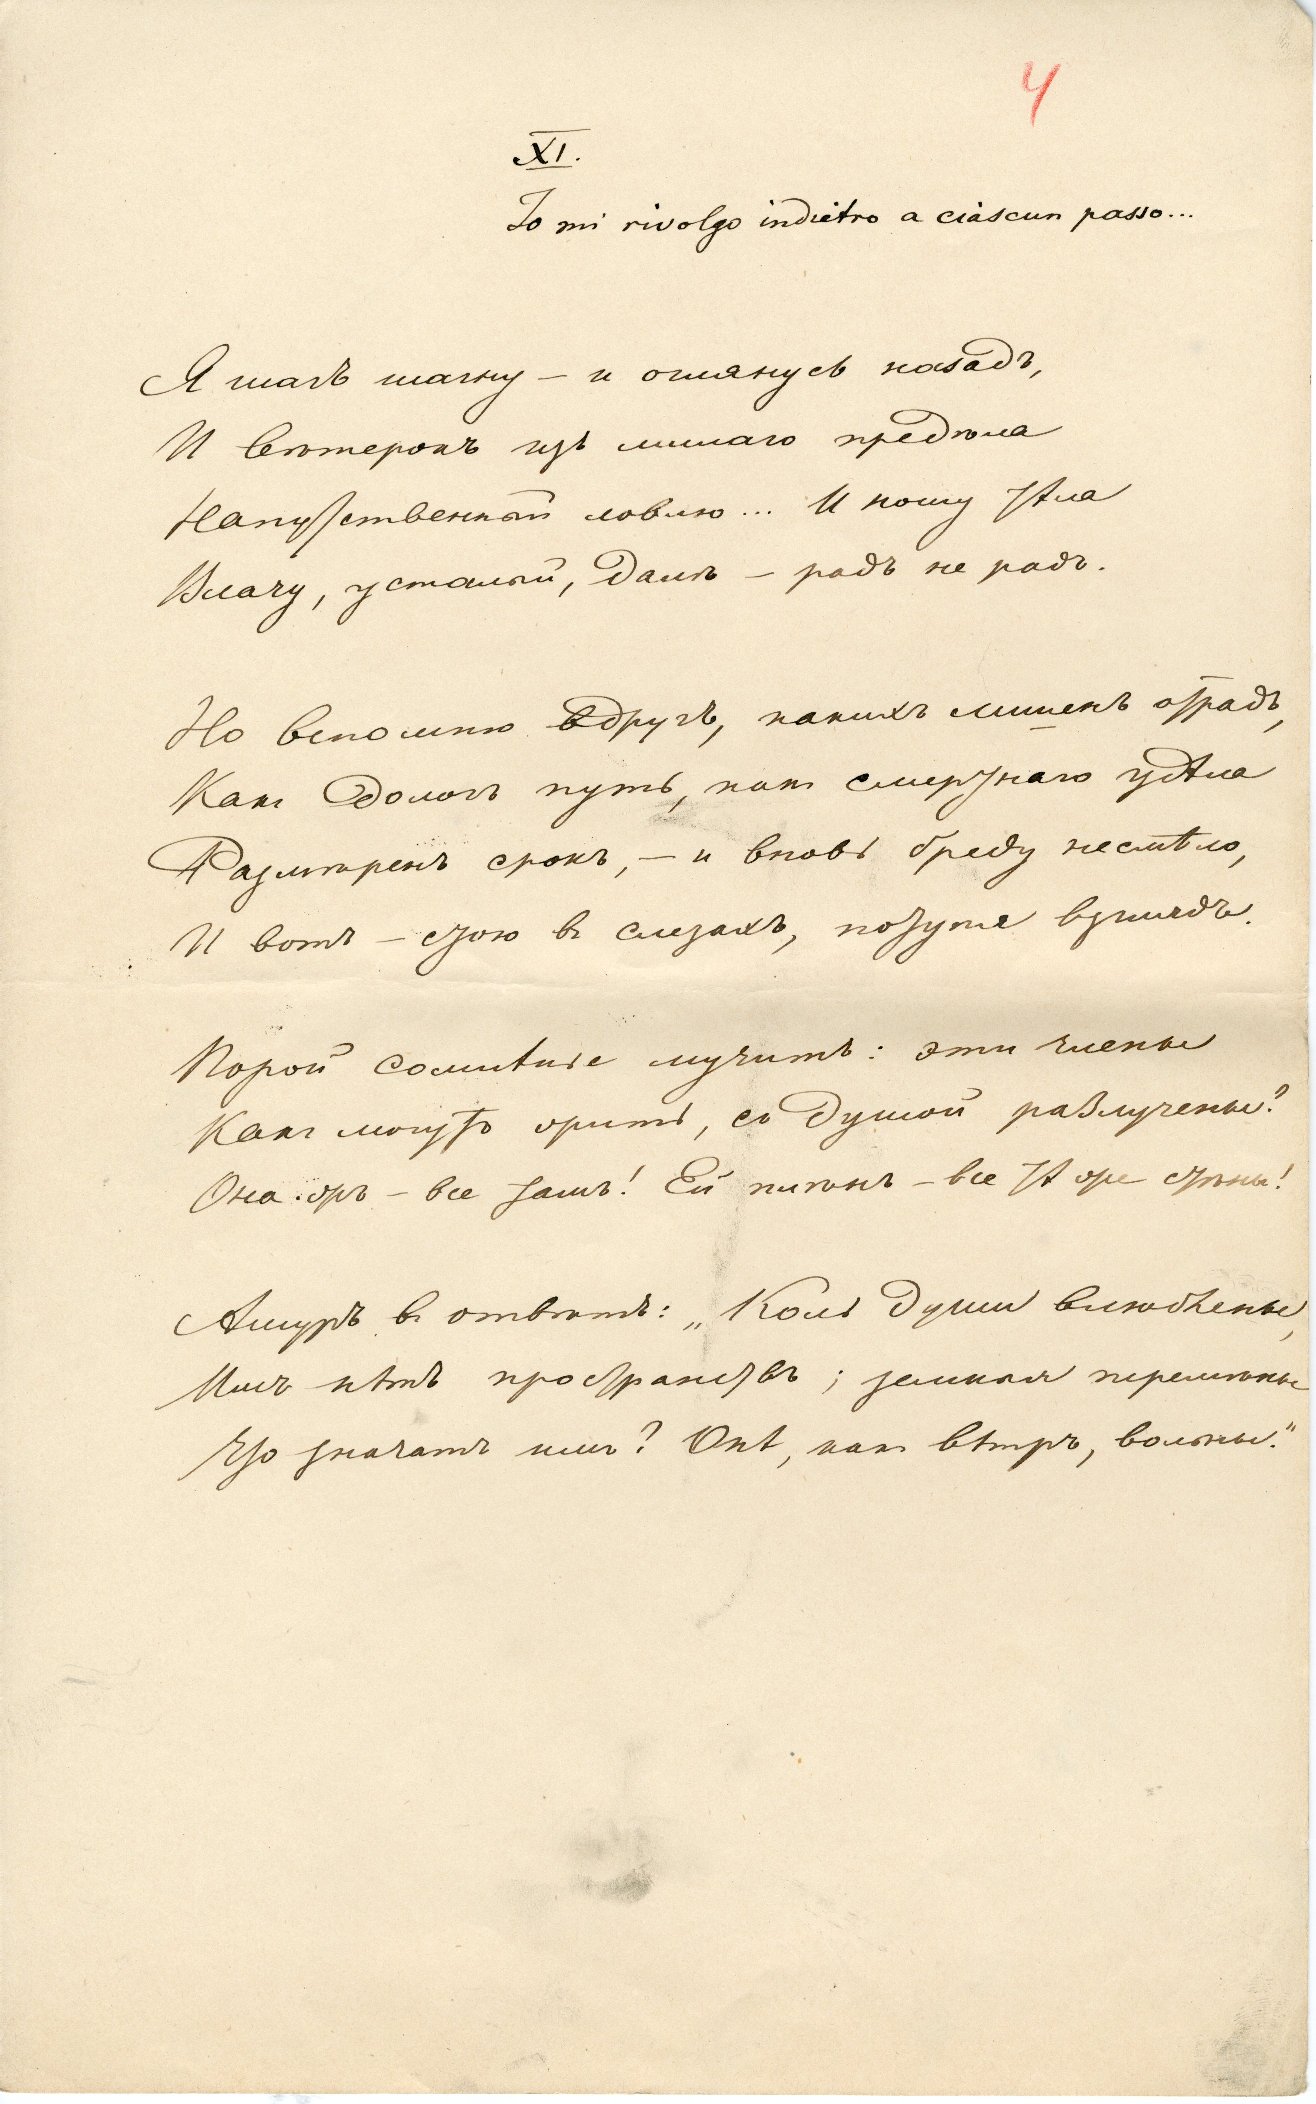 4
XI.
Io mi rivolgo indietro a ciascun passo...
Я шагъ шагну – и оглянусь назадъ,
И вѣтерокъ изъ милаго предѣла
Напутственный ловлю... И ношу тѣла
Влачу, усталый, далѣ – радъ не радъ.
Но вспомню вдругъ, какихъ лишенъ отрадъ,
Какъ дологъ путь, какъ смертнаго удѣла
Размѣренъ срокъ, – и вновь бреду несмѣло,
И вотъ – стою въ слезахъ, потупя взглядъ.
Порой сомнѣнье мучитъ: эти члены
Какъ могутъ жить, съ душой разлучены?
Она жъ – все тамъ! Ей плѣнъ – все тѣ же стѣны!
Амуръ въ отвѣтъ: „Коль души влюблены,
Имъ нѣтъ пространствъ; земныя перемѣны
Что значатъ имъ? Онѣ, какъ вѣтръ, вольны."